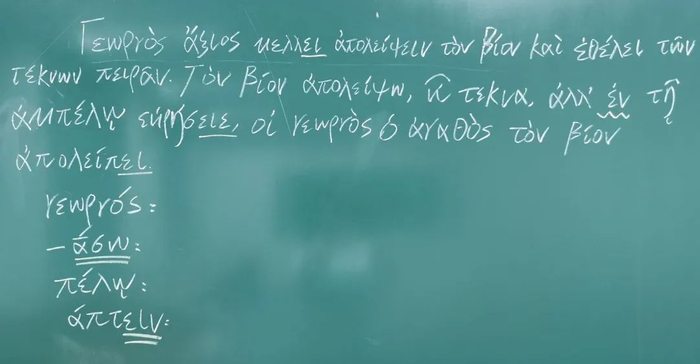 Γεωργὸς ἄξιος μελλει ἀπολείψειν τὸν βίον καὶ ἐθέλει τῶν
τέκνων πειρᾶν. Τὸν βίον ἀπολείψω, ὦ τεκνα, ἀλλ' ἐν τῇ
ἀμπέλῳ εὑρήσειε, οἱ γεωργὸς ὁ ἀγαθὸς τὸν βίον
ἀπολείπει.
γεωργός:
– άσω:
πέλῳ:
άπτειν: